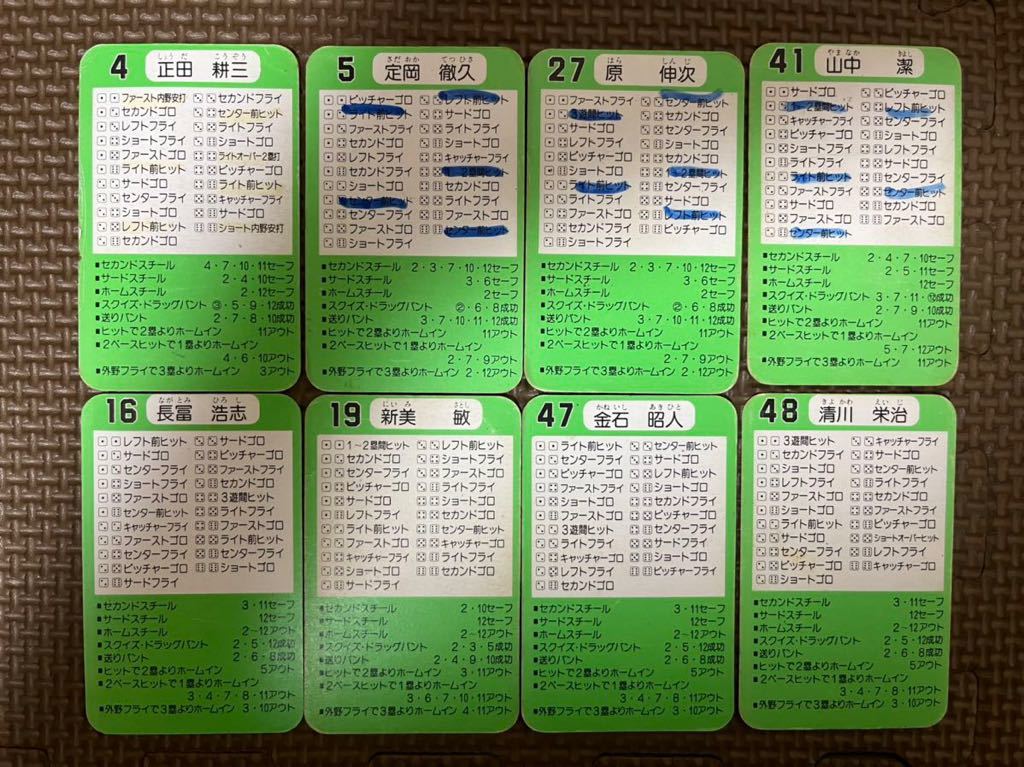 4
しょうだ こうぞう
正田 耕三
ファースト内野安打
セカンドゴロ
レフトフライ
ショートフライ
ファーストゴロ
ライト前ヒット
サードゴロ
センターフライ
ショートゴロ
レフト前ヒット
セカンドゴロ
セカンドフライ
センター前ヒット
ライトフライ
ショートゴロ
ライトオーバー2塁打
ピッチャーゴロ
ライト前ヒット
キャッチャーフライ
サードゴロ
ショート内野安打
■セカンドスチール 4・7・10・11セーフ
■サードスチール 2・4・10セーフ
■ホームスチール 2・12セーフ
■スクイズ・ドラッグバント ③・5・9・12成功
■送りバント 2・7・8・10成功
■ヒットで2塁よりホームイン 11アウト
■2ベースヒットで1塁よりホームイン
4・6・10アウト
■外野フライで3塁よりホームイン 3アウト
5
さだおか てつひさ
定岡 徹久
ピッチャーゴロ
ライト前ヒット
ファーストフライ
ショートゴロ
レフトフライ
セカンドフライ
ショートゴロ
センター前ヒット
センターフライ
ファーストゴロ
ショートフライ
レフト前ヒット
サードゴロ
ライトフライ
ショートゴロ
キャッチャーフライ
1〜2塁間ヒット
セカンドゴロ
ライトフライ
ファーストゴロ
センター前ヒット
■セカンドスチール 2・3・7・10・12セーフ
■サードスチール 3・6セーフ
■ホームスチール 2セーフ
■スクイズ・ドラッグバント ②・6・8成功
■送りバント 3・7・10・11・12成功
■ヒットで2塁よりホームイン 11アウト
■2ベースヒットで1塁よりホームイン
2・7・9アウト
■外野フライで3塁よりホームイン 2・12アウト
27
はら しんじ
原 伸次
ファーストフライ
3遊間ヒット
サードゴロ
レフトフライ
ピッチャーゴロ
ショートゴロ
ライト前ヒット
ライトフライ
ファーストゴロ
セカンドゴロ
ショートフライ
センター前ヒット
サードゴロ
センターフライ
ショートゴロ
セカンドゴロ
1〜2塁間ヒット
センターフライ
サードゴロ
レフト前ヒット
ピッチャーゴロ
■セカンドスチール 2・3・7・10・12セーフ
■サードスチール 3・6セーフ
■ホームスチール 2セーフ
■スクイズ・ドラッグバント ②・6・8成功
■送りバント 3・7・10・11・12成功
■ヒットで2塁よりホームイン 11アウト
■2ベースヒットで1塁よりホームイン
2・7・9アウト
■外野フライで3塁よりホームイン 2・12アウト
41
やまなか きよし
山中 潔
サードゴロ
1〜2塁間ヒット
キャッチャーフライ
ピッチャーゴロ
ショートゴロ
ライトフライ
ライト前ヒット
ファーストフライ
サードゴロ
ファーストゴロ
センター前ヒット
ピッチャーゴロ
レフト前ヒット
センターフライ
ショートゴロ
サードフライ
セカンドゴロ
ライトフライ
センター前ヒット
セカンドゴロ
ファーストゴロ
■セカンドスチール 2・4・7・10セーフ
■サードスチール 2・5・11セーフ
■ホームスチール 12セーフ
■スクイズ・ドラッグバント 3・7・11・⑫成功
■送りバント 2・7・9・10成功
■ヒットで2塁よりホームイン 11アウト
■2ベースヒットで1塁よりホームイン
5・7・12アウト
■外野フライで3塁よりホームイン 11アウト
16
ながとみ ひろし
長冨 浩志
レフト前ヒット
サードゴロ
センターフライ
ショートフライ
ファーストゴロ
センター前ヒット
キャッチャーフライ
ライトフライ
ショートゴロ
ピッチャーゴロ
サードフライ
サードゴロ
ピッチャーゴロ
ファーストフライ
セカンドゴロ
3遊間ヒット
ライトフライ
ファーストゴロ
センターフライ
センターフライ
ショートゴロ
■セカンドスチール 3・11セーフ
■サードスチール 12セーフ
■ホームスチール 2〜12アウト
■スクイズ・ドラッグバント 2・5・12成功
■送りバント 2・6・8成功
■ヒットで2塁よりホームイン 5アウト
■2ベースヒットで1塁よりホームイン
3・4・7・8・11アウト
■外野フライで3塁よりホームイン 3・10アウト
19
にいみ さとし
新美 敏
1〜2塁間ヒット
セカンドゴロ
センターフライ
ピッチャーゴロ
サードゴロ
レフトフライ
ライト前ヒット
ファーストゴロ
キャッチャーフライ
ショートゴロ
サードフライ
レフト前ヒット
ショートフライ
ファーストゴロ
セカンドフライ
ショートゴロ
センター前ヒット
キャッチャーゴロ
ライトフライ
セカンドゴロ
■セカンドスチール 2・10セーフ
■サードスチール 12セーフ
■ホームスチール 2〜12アウト
■スクイズ・ドラッグバント 2・3・5成功
■送りバント 2・4・9・10成功
■ヒットで2塁よりホームイン 3・11アウト
■2ベースヒットで1塁よりホームイン
3・6・7・10・11アウト
■外野フライで3塁よりホームイン 4・11アウト
47
かねいし あきひと
金石 昭人
ライト前ヒット
センターフライ
ピッチャーゴロ
ファーストフライ
ショートゴロ
ファーストゴロ
3遊間ヒット
ライトフライ
キャッチャーゴロ
レフトフライ
セカンドゴロ
センター前ヒット
サードゴロ
レフト前ヒット
ショートゴロ
セカンドフライ
センターフライ
ピッチャーゴロ
サードゴロ
ショートゴロ
ピッチャーフライ
■セカンドスチール 3・11セーフ
■サードスチール 12セーフ
■ホームスチール 2〜12アウト
■スクイズ・ドラッグバント 2・5・12成功
■送りバント 2・6・8成功
■ヒットで2塁よりホームイン 5アウト
■2ベースヒットで1塁よりホームイン
3・4・7・8・11アウト
■外野フライで3塁よりホームイン 3・10アウト
48
きよかわ えいじ
清川 栄治
3遊間ヒット
セカンドフライ
ショートゴロ
サードフライ
ファーストゴロ
ショートフライ
ライト前ヒット
サードゴロ
センターフライ
ピッチャーゴロ
ショートゴロ
キャッチャーフライ
サードゴロ
センター前ヒット
セカンドゴロ
セカンドゴロ
ファーストフライ
ピッチャーゴロ
ショートオーバーヒット
レフトフライ
キャッチャーゴロ
■セカンドスチール 3・11セーフ
■サードスチール 12セーフ
■ホームスチール 2〜12アウト
■スクイズ・ドラッグバント 2・5・12成功
■送りバント 2・6・8成功
■ヒットで2塁よりホームイン 5アウト
■2ベースヒットで1塁よりホームイン
3・4・7・8・11アウト
■外野フライで3塁よりホームイン 3・10アウト